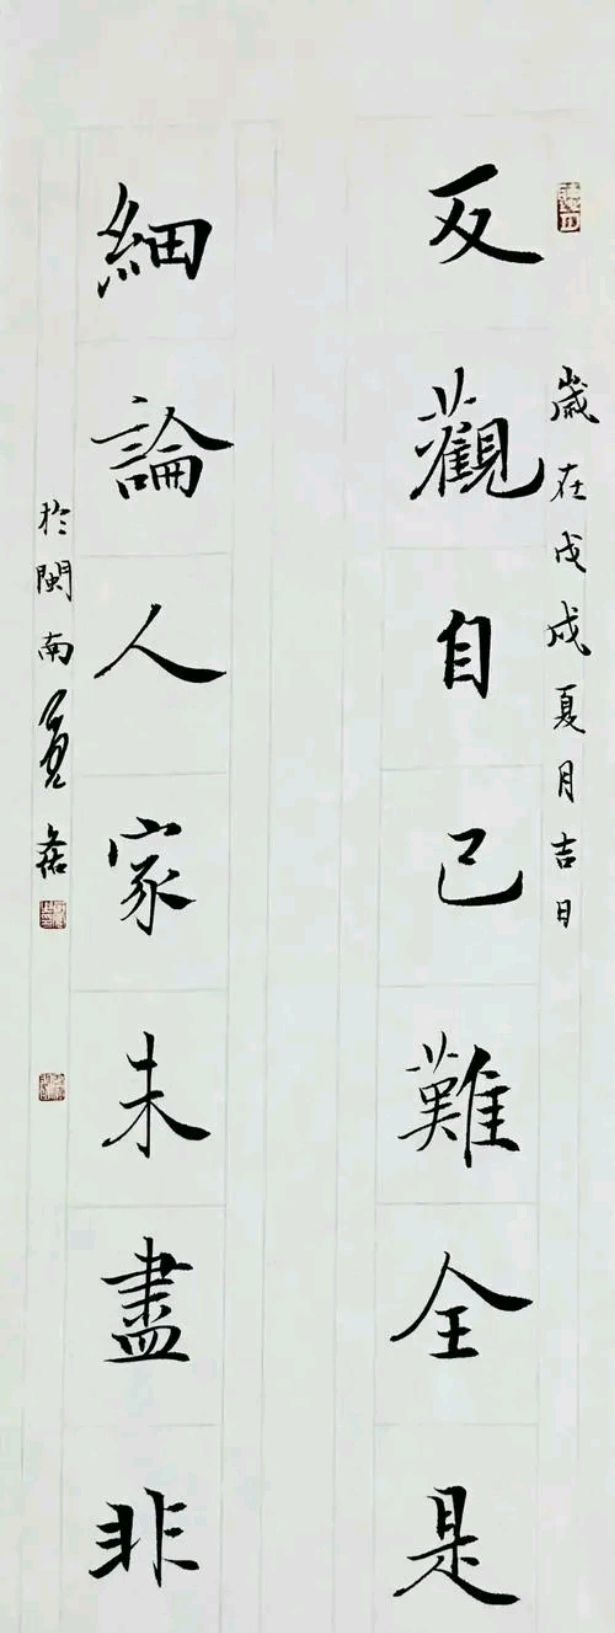 歲在戊戌夏月吉日
反觀自己難全是
細論人家未盡非
於閩南